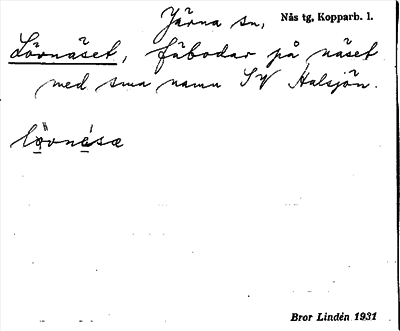 Järna sn, Nås tg, Kopparb. l.
Lövnäset, fäbodar på näset
med sma namn SV Halsjön.
lövnésæ
Bror Lindén 1931